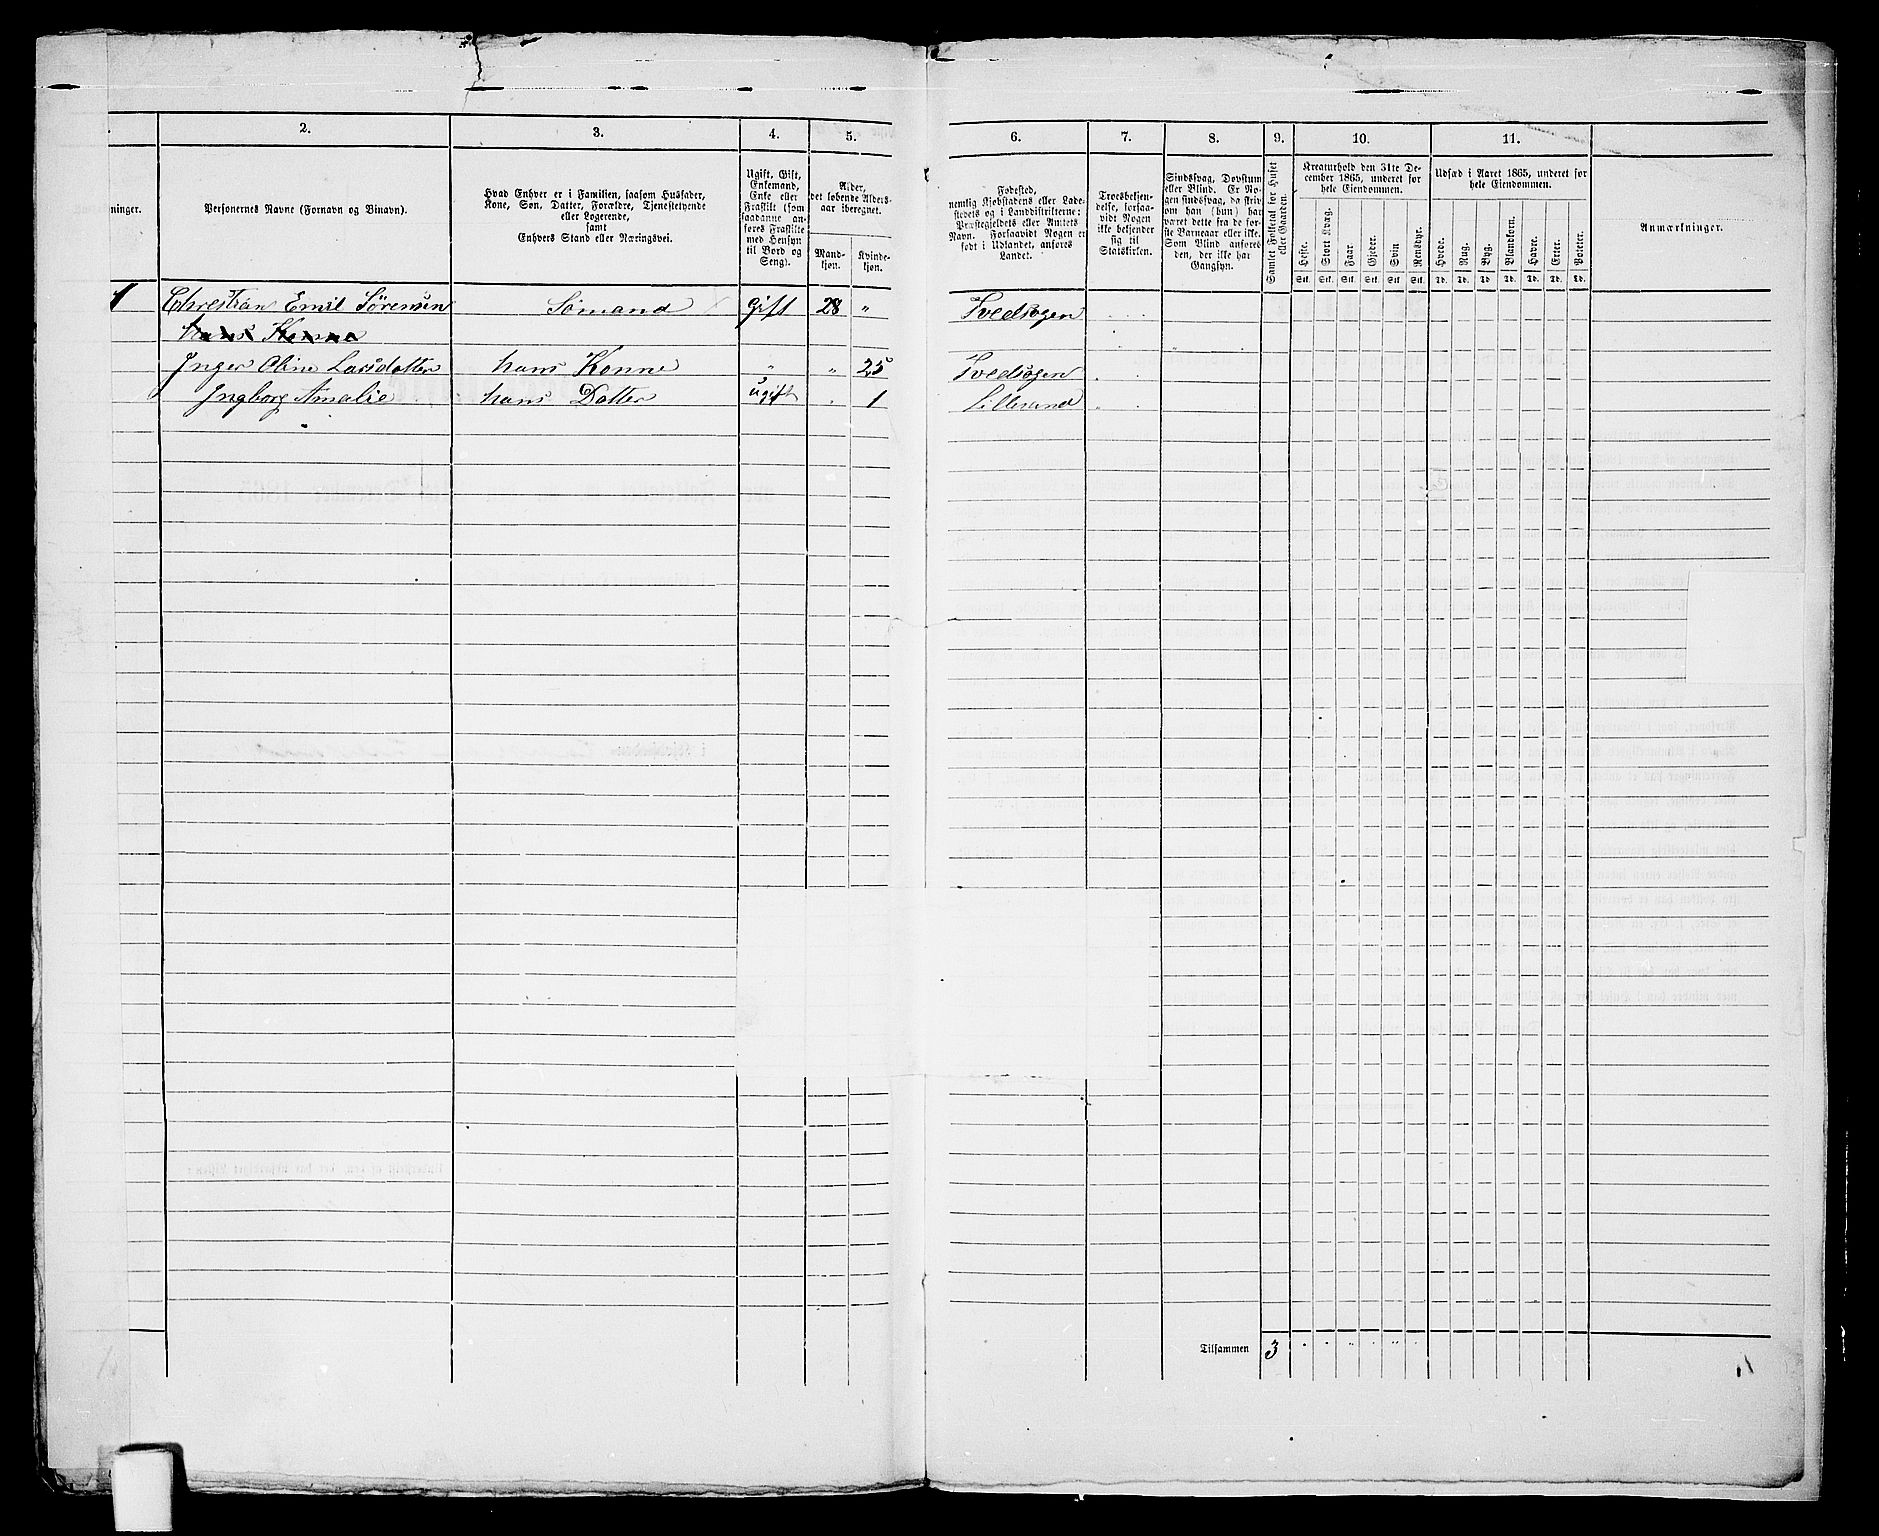 2. 3. 4. 5. 6. 7. 8. 9. 10. 11.
ninger.
Personernes Navne (Fornavn og Binavn).
Hvad Enhver er i Familien, saasom Husfader,
Kone, Søn, Datter, Forældre, Tjenestetyende
eller Logerende,
samt
Enhvers Stand eller Næringsvei.
Ugift, Gift,
Enkemand,
Enke eller
Fraskilt (som
saadanne an-
føres Fraskilte
med Hensyn
til Bord og
Seng).
Alder,
det løbende Alders-
aar iberegnet.
Mand-
kjøn.
Kvinde-
kjøn.
Fødested,
nemlig Kjøbstadens eller Lade-
stedets og i Landdistrikterne:
Præstegjeldets eller Amtets
Navn. Forsaavidt Nogen er
født i Udlandet, anføres
Landet.
Troesbekjen-
delse, forsaa-
vidt Nogen
ikke bekjender
sig til
Statskirken.
Sindssvag, Døvstum
eller Blind. Er No-
gen sindssvag, da skriv
om han (hun) har
været dette fra de før-
ste Barneaar eller ikke.
Som Blind anføres
den, der ikke har
Gangsyn.
Samlet Folketal for Huset
eller Gaarden.
Kreaturhold den 31te De-
cember 1865, underet for
hele Eiendommen.
Heste.
Stort Kvæg.
Faar.
Gjeder.
Svin
Rensdyr.
Stk. Stk. Stk. Stk. Stk. Stk.
Udsæd i Aaret 1865, underet for
hele Eiendommen.
Hvede.
Rug.
Byg.
Blandkorn.
Havre.
Erter.
Poteter.
Td. Td. Td. Td. Td. Td. Td.
Anmærkninger.
1 Christian Emil Sørensen Sømand Gift 28 " Tvedsogen
hans Konne
Inger Oline Larsdatter hans Konne " " 25 Tvedsogen
Ingborg Amalie hans Datter ugift " 1 Lillesand
Tilsammen 3